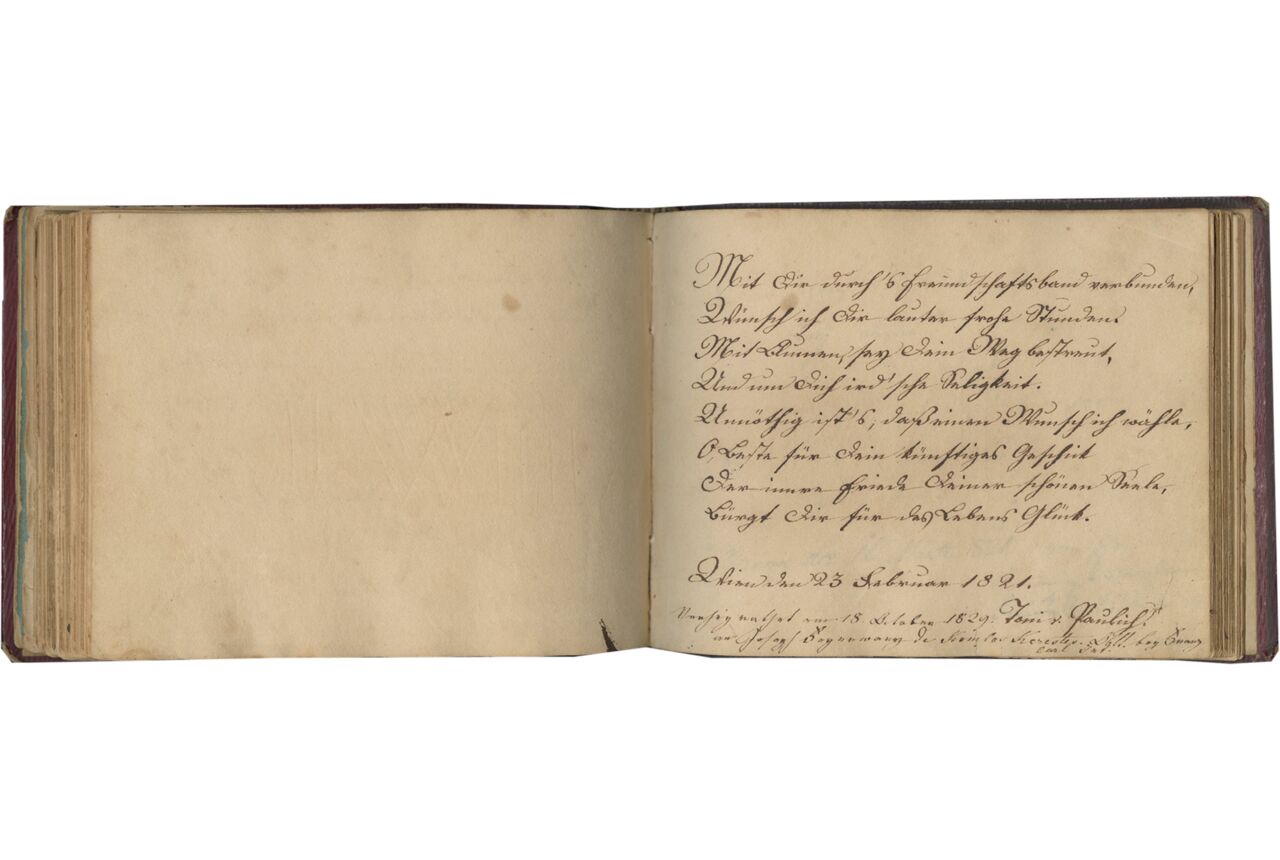 Mit Dir durch's Freundschaftsband verbunden,
Wünsch ich Dir lauter frohe Stunden.
Mit Blumen, sey Dein Weg bestreut,
Und um Dich ird'sche Seligkeit.
Unnöthig ist's, daß einen Wunsch ich wähle,
O, Beste für Dein künftiges Geschick
Der innre Friede Deiner schönen Seele,
Bürgt Dir für des Lebens Glück.
Wien den 23 Februar 1821.
Verheyrathet am 18. October 1829. Toni v. Paulich.
an Joseph bey Franz
Carl Inf.